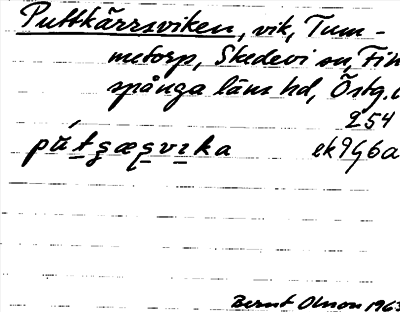 Puttkärrsviken, vik, Tum-
metorp, Skedevi sn, Fin
spånga läns hd, Östg.l
254
pút̠ʂæʂvɪka ek 9G6a
Bernt Olson 1963